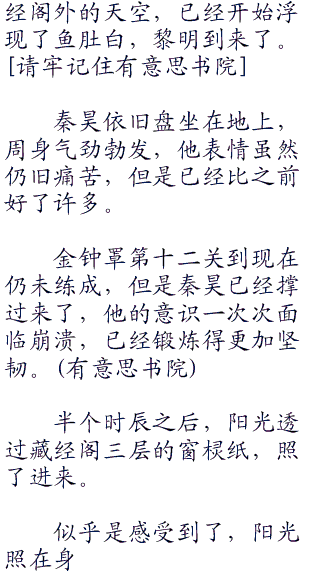 经阁外的天空，已经开始浮
现了鱼肚白，黎明到来了。
[请牢记住有意思书院]
秦昊依旧盘坐在地上，
周身气劲勃发，他表情虽然
仍旧痛苦，但是已经比之前
好了许多。
金钟罩第十二关到现在
仍未练成，但是秦昊已经撑
过来了，他的意识一次次面
临崩溃，已经锻炼得更加坚
韧。(有意思书院)
半个时辰之后，阳光透
过藏经阁三层的窗棂纸，照
了进来。
似乎是感受到了，阳光
照在身